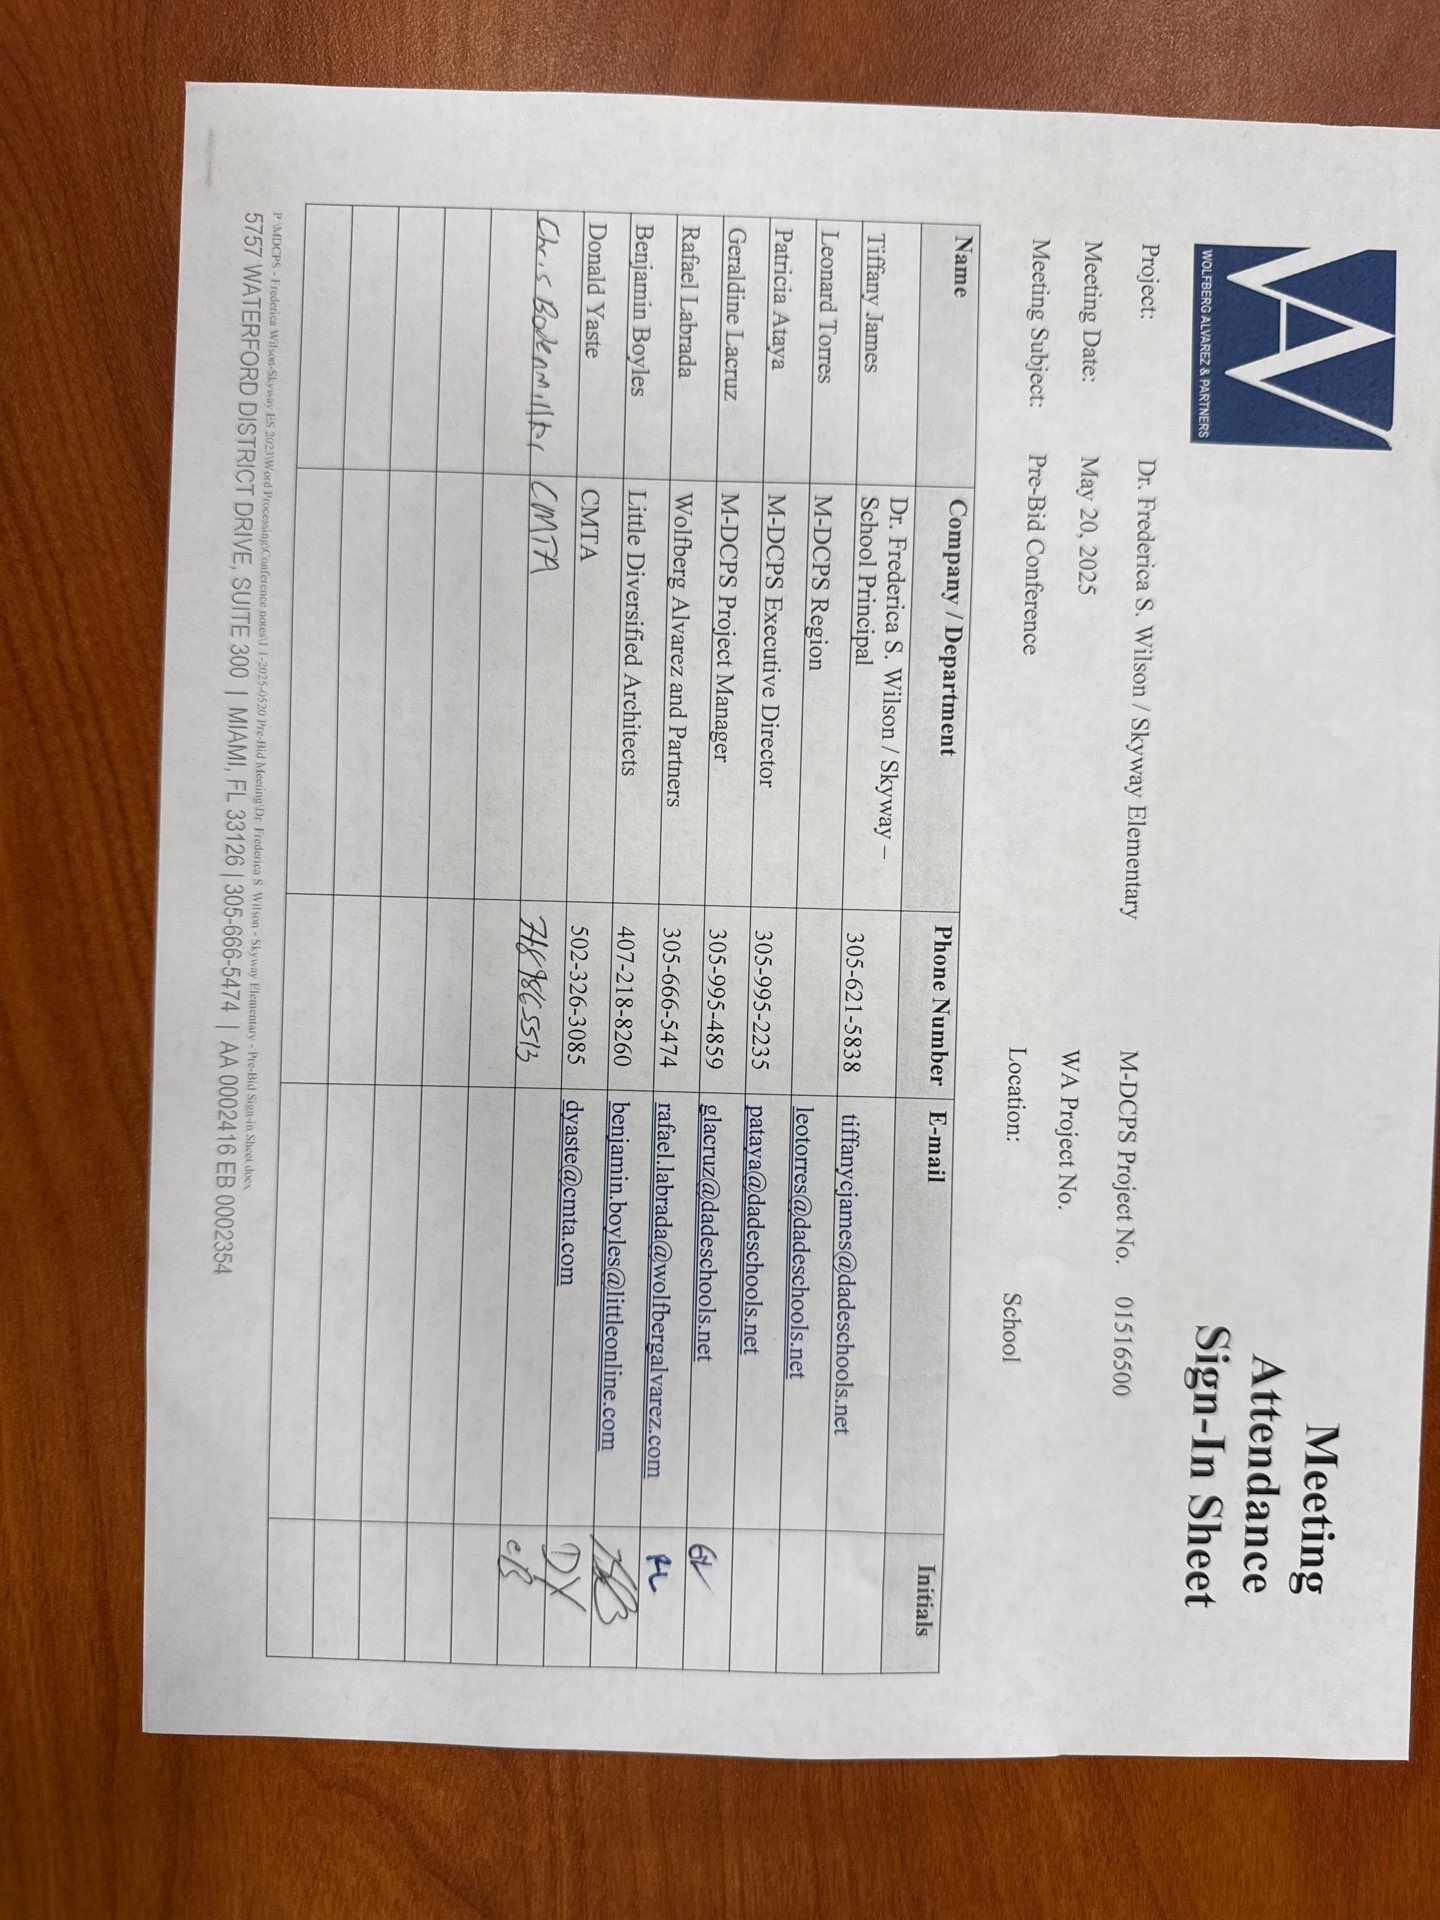 WOLFBERG ALVAREZ & PARTNERS
Meeting
Attendance
Sign-In Sheet
Project: Dr. Frederica S. Wilson / Skyway Elementary M-DCPS Project No. 01516500
Meeting Date: May 20, 2025 WA Project No.
Meeting Subject: Pre-Bid Conference Location: School
Name Company / Department Phone Number E-mail Initials
Tiffany James Dr. Frederica S. Wilson / Skyway –
School Principal 305-621-5838 tiffanycjames@dadeschools.net
Leonard Torres M-DCPS Region leotorres@dadeschools.net
Patricia Ataya M-DCPS Executive Director 305-995-2235 pataya@dadeschools.net
Geraldine Lacruz M-DCPS Project Manager 305-995-4859 glacruz@dadeschools.net GL
Rafael Labrada Wolfberg Alvarez and Partners 305-666-5474 rafael.labrada@wolfbergalvarez.com RL
Benjamin Boyles Little Diversified Architects 407-218-8260 benjamin.boyles@littleonline.com
Donald Yaste CMTA 502-326-3085 dyaste@cmta.com DY
Chris Bodenmiller CMTA CB
P:\MDCPS - Frederica Wilson-Skyway ES 2023\Word Processing\Conference notes\1 1-2025-0520 Pre-Bid Meeting\Dr. Frederica S. Wilson - Skyway Elementary - Pre-Bid Sign-in Sheet.docx
5757 WATERFORD DISTRICT DRIVE, SUITE 300 | MIAMI, FL 33126 | 305-666-5474 | AA 0002416 EB 0002354